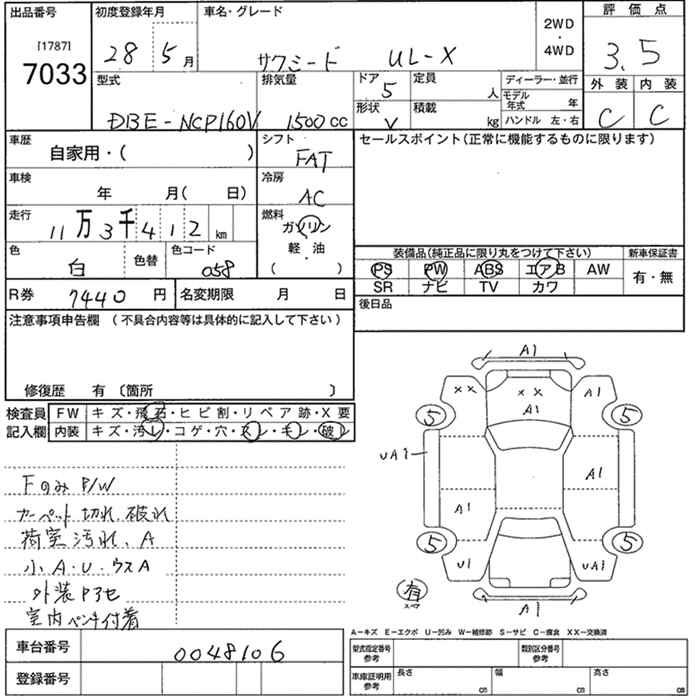 出品番号
[1787]
7033
初度登録年月
28 5月
車名・グレード
サクシード UL-X
2WD
・
4WD
評価点
3.5
外装 内装
C C
型式
DBE-NCP160V
排気量
1500cc
ドア
5
形状
V
定員
人
積載
kg
ディーラー・並行
モデル年式 年
ハンドル 左・右
車歴
自家用・( )
シフト
FAT
車検
年 月( 日)
冷房
AC
走行
11万3千412km
燃料
ガソリン
軽・油
( )
色
白
色替
色コード
058
R券
7440円
名変期限 月 日
セールスポイント(正常に機能するものに限ります)
装備品(純正品に限り丸をつけて下さい)
PS PW ABS エアB AW
SR ナビ TV カワ
新車保証書
有・無
後日品
注意事項申告欄 (不具合内容等は具体的に記入して下さい)
修復歴 有〔箇所 〕
検査員
記入欄
FW キズ・飛石・ヒビ割・リペア跡・X要
内装 キズ・汚レ・コゲ・穴・スレ・キレ・破レ
Fのみ P/W
カーペット切れ、破れ
荷室汚れ、A
小A・U・ウスA
外装P3セ
室内ペンキ付着
A1
××
××
A1
A1
5
5
UA1
A1
A1
5
5
U1
U1
有
A1
A−キズ E−エクボ U−凹み W−補修跡 S−サビ C−腐食 XX−交換済
車台番号
0048106
登録番号
型式指定番号
参考
類別区分番号
参考
車庫証明用
参考
長さ cm
幅 cm
高さ cm